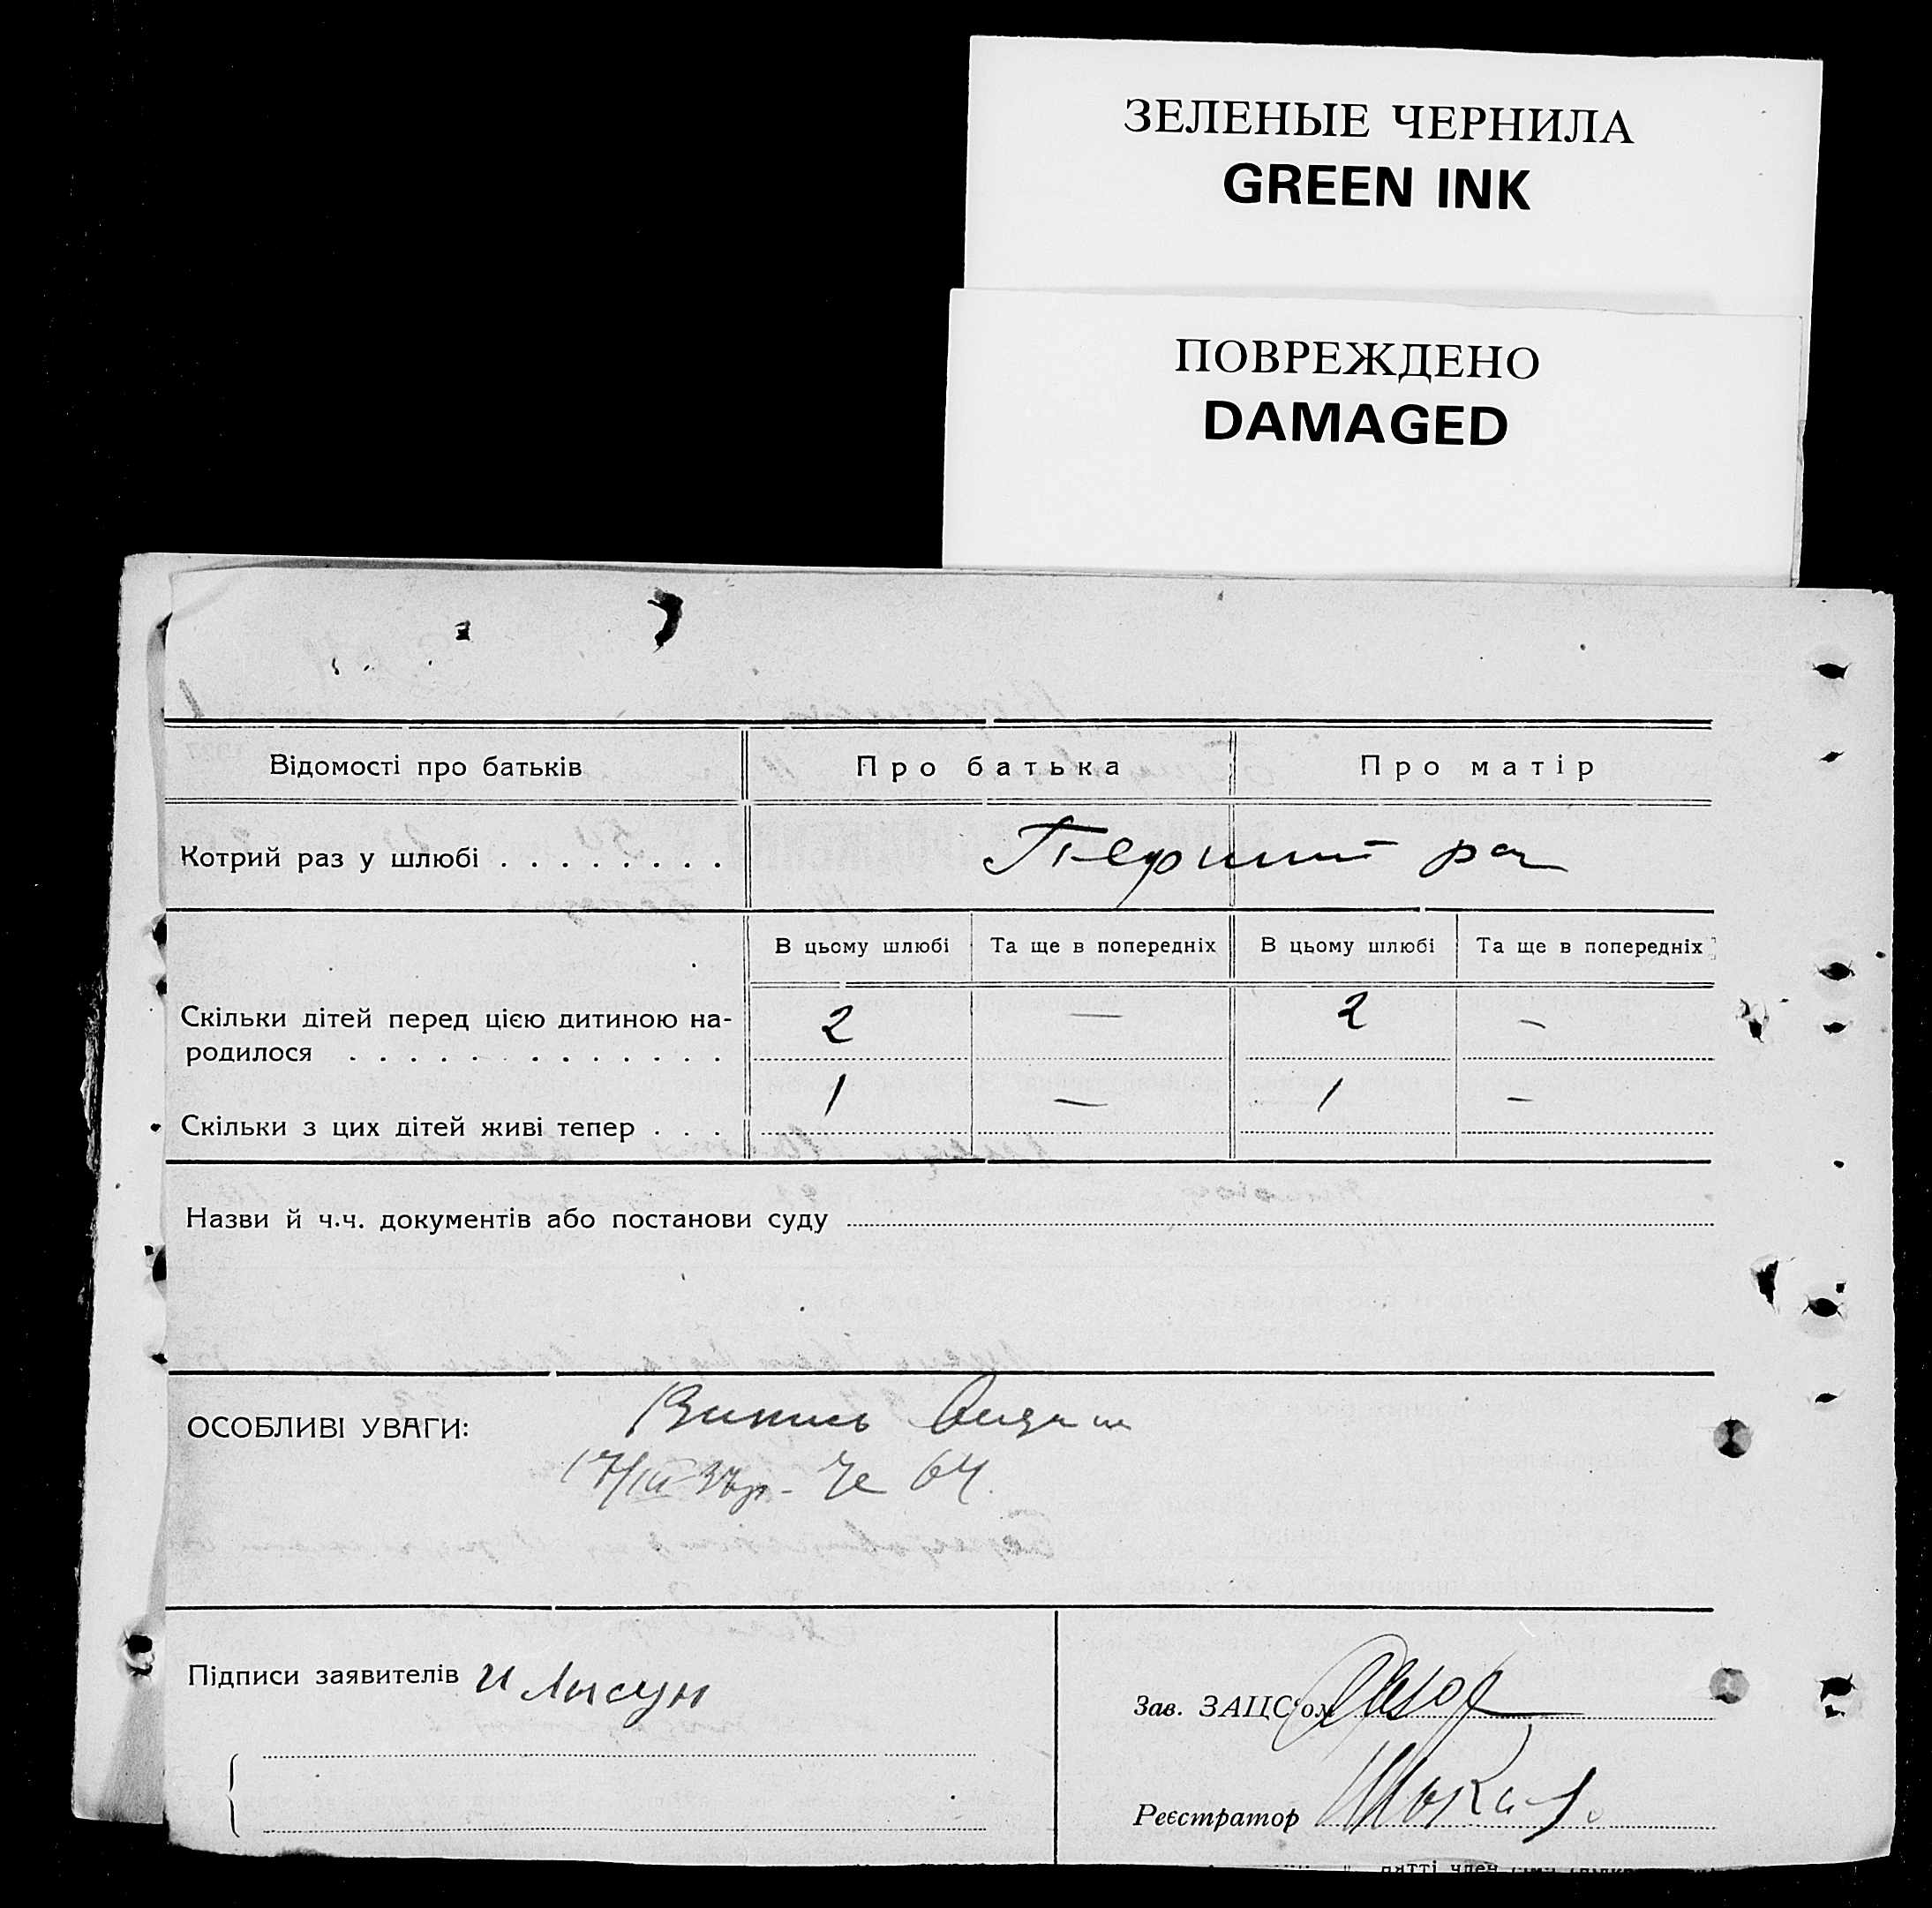 ЗЕЛЕНЫЕ ЧЕРНИЛА
GREEN INK
ПОВРЕЖДЕНО
DAMAGED
Відомості про батьків Про батька Про матір
Котрий раз у шлюбі . . . . . . . . Перший раз
В цьому шлюбі Та ще в попередніх В цьому шлюбі Та ще в попередніх
Скільки дітей перед цією дитиною на-
родилося . . . . . . . . . . . . . 2 — 2 —
Скільки з цих дітей живі тепер . . . 1 — 1 —
Назви й ч.ч. документів або постанови суду
ОСОБЛИВІ УВАГИ: Випись
17/III 37р. № 64.
Підписи заявителів И Лысун
Зав. ЗАЦС'ом
Реєстратор